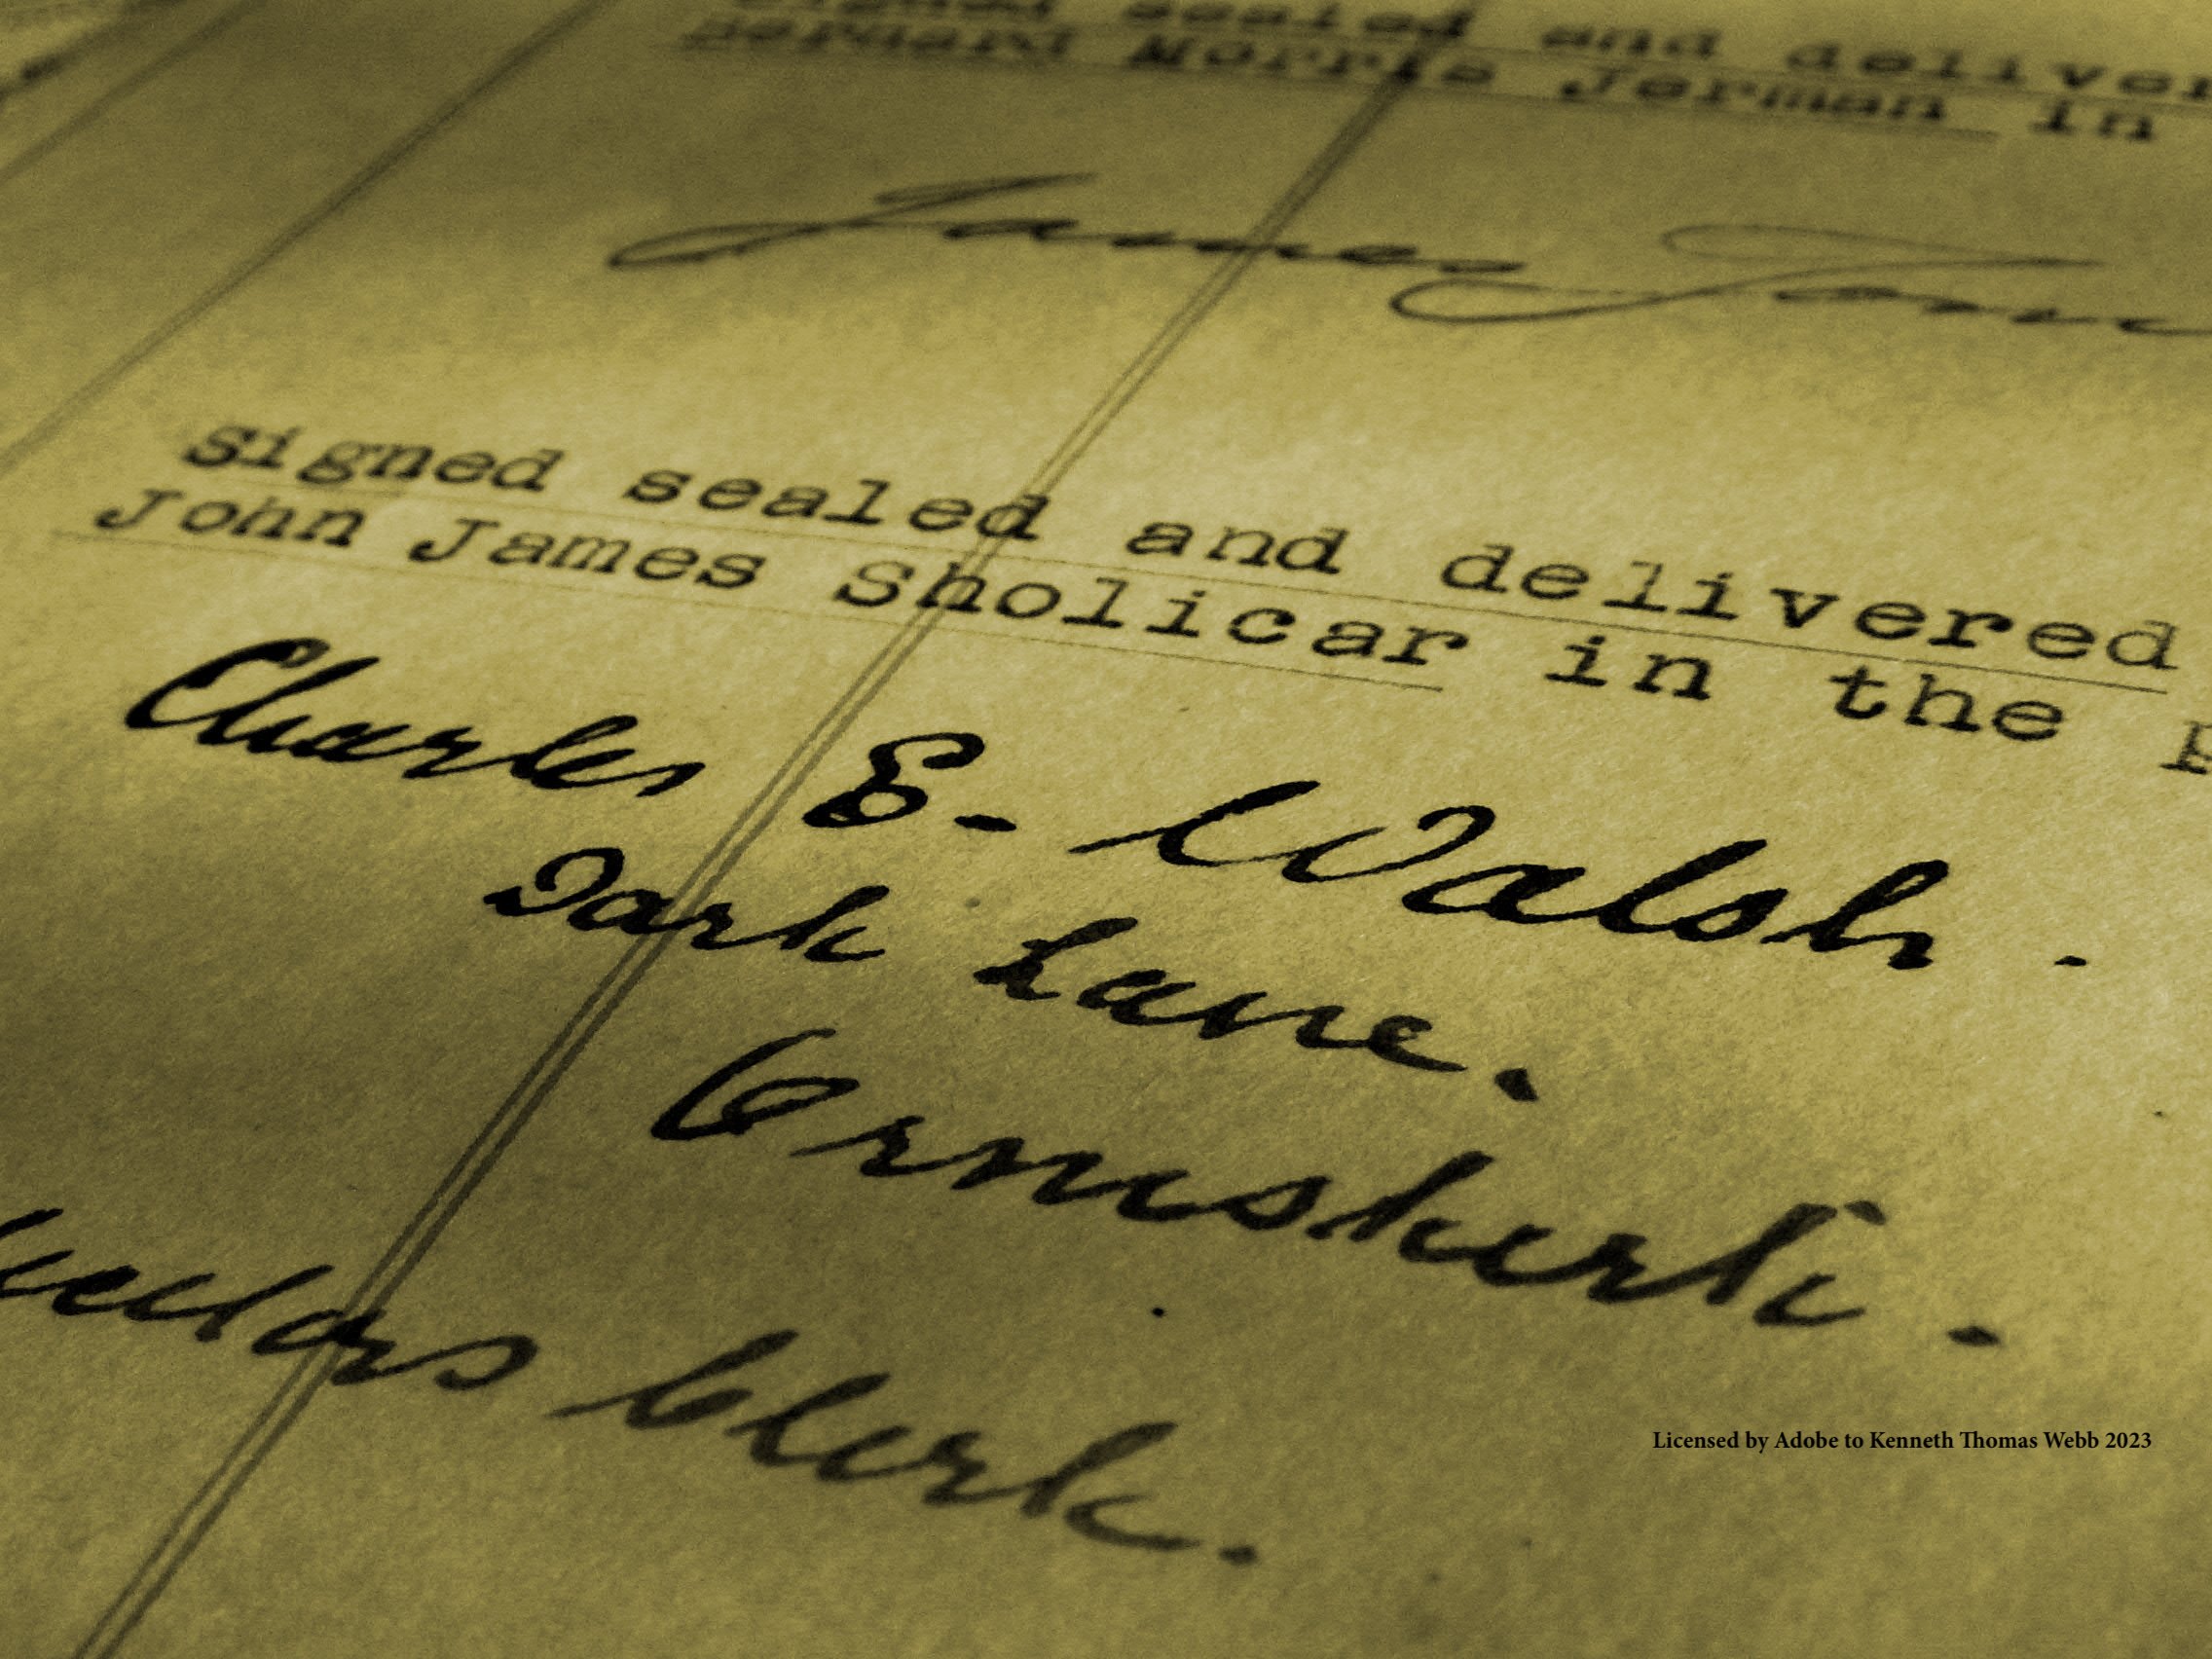 signed sealed and deliver
Bernard Morris Jerman in
James
signed sealed and delivered
John James Sholicar in the p
Charles E. Walsh.
Dark Lane.
Ormskirk.
Clerk.
Licensed by Adobe to Kenneth Thomas Webb 2023